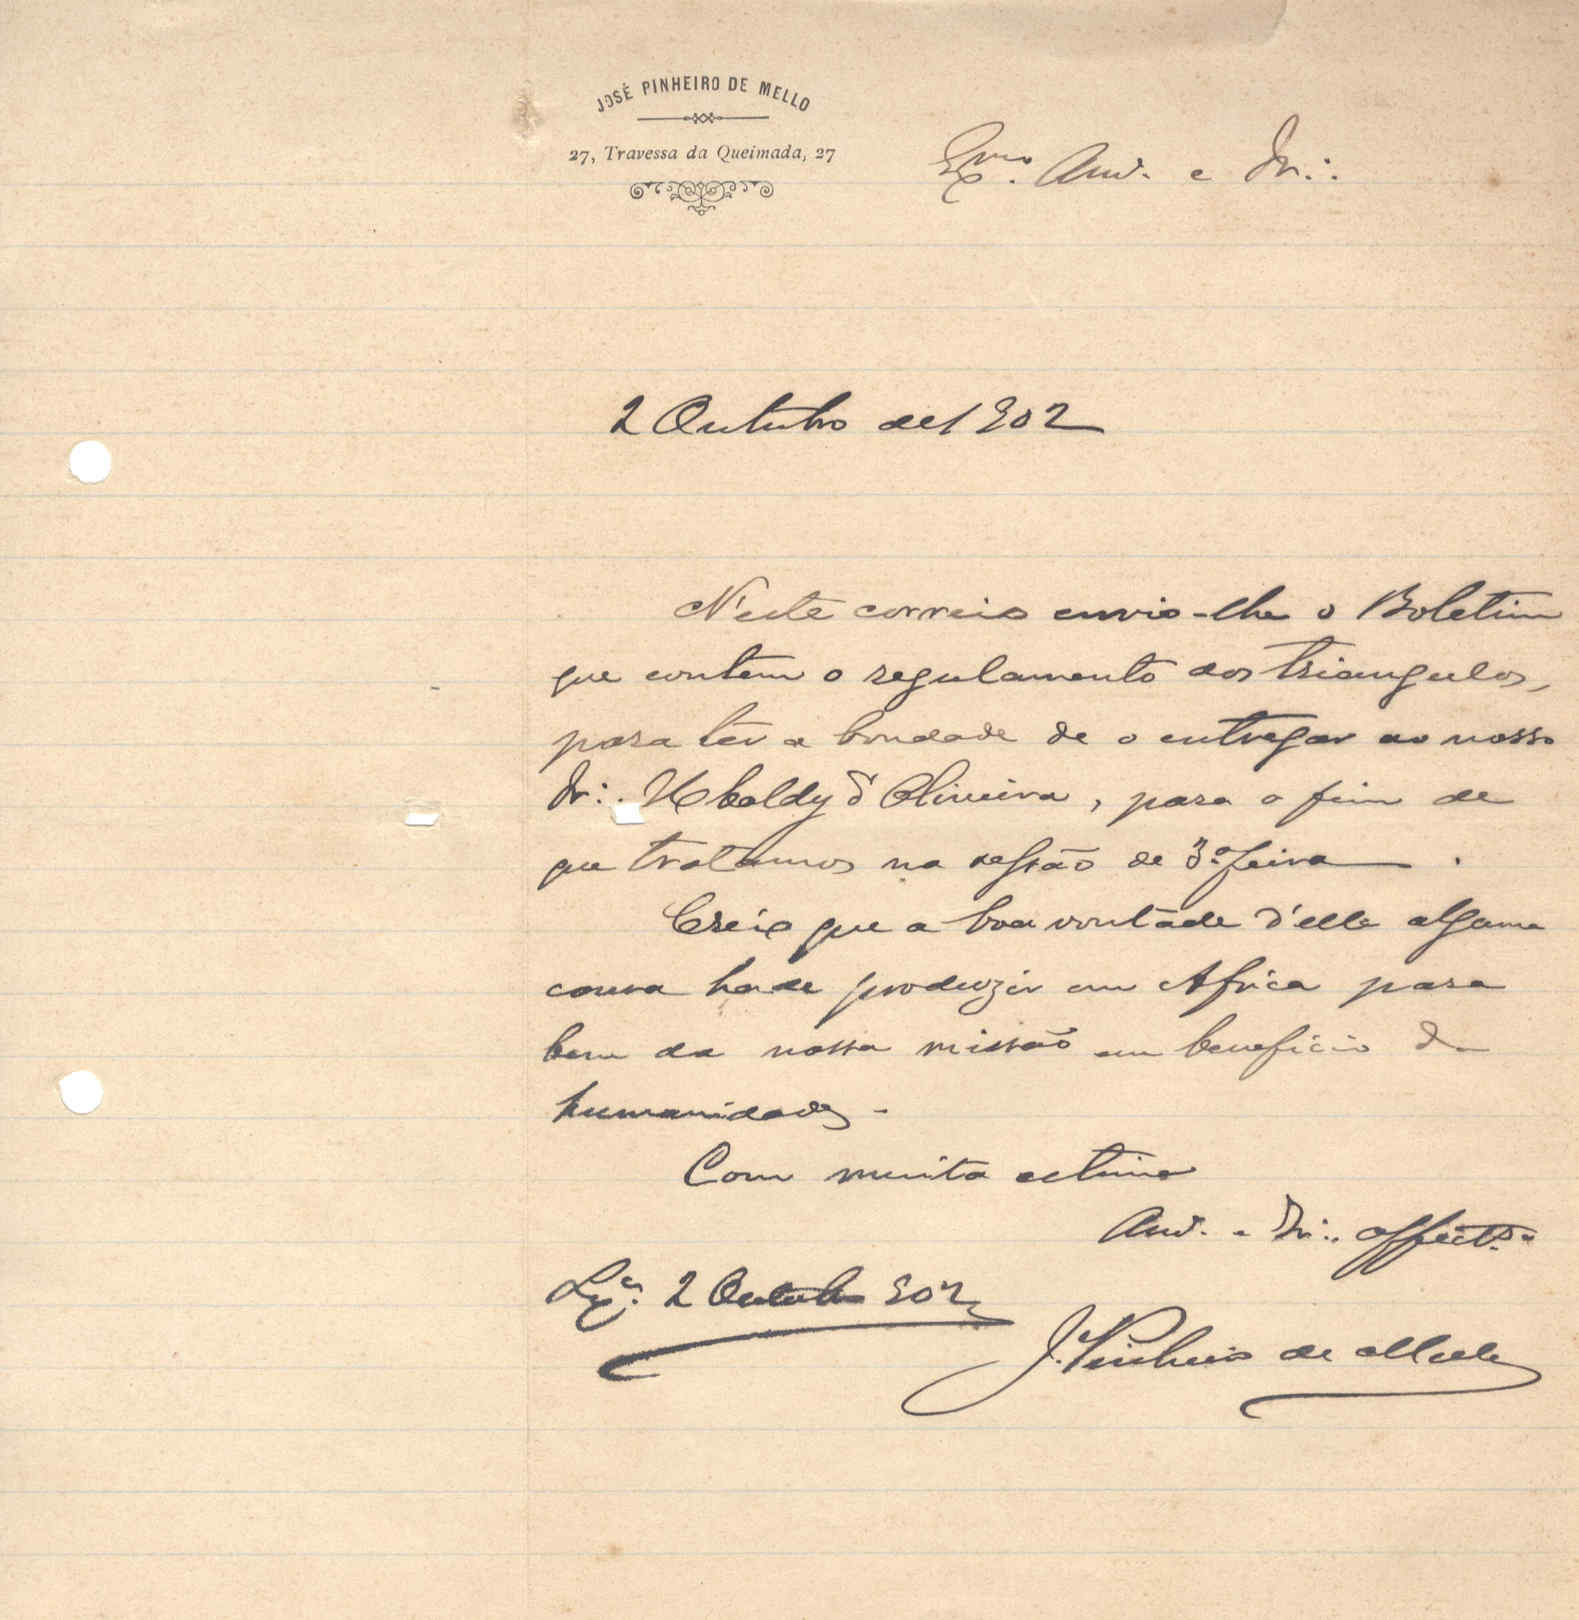 JOSÉ PINHEIRO DE MELLO
27, Travessa da Queimada, 27
Exmo. Amo. e Ir.:
2 Outubro de 1902
N'este correio envio-lhe o Boletim
que contem o regulamento dos triangulos,
para têr a bondade de o entregar ao nosso
Ir.: Ubaldy d'Oliveira, para o fim de
que tratamos na sessão de 3.ª feira.
Creio que a boa vontade d'elle alguma
cousa hade produzir em Africa para
bem da nossa missão em beneficio da
humanidade.
Com muita estima
Amo. e Ir.: affecto.
Lxa. 2 Outubro 902
J. Pinheiro de Mello